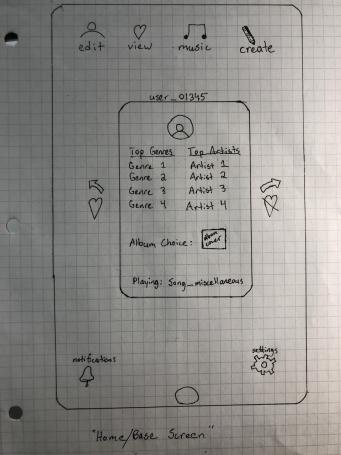 edit view music create
user_01345
Top Genres Top Artists
Genre 1 Artist 1
Genre 2 Artist 2
Genre 3 Artist 3
Genre 4 Artist 4
Album Choice: album cover
Playing: Song_miscellaneous
notifications settings
"Home/Base Screen"